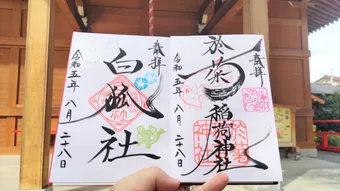 奉拝
於菊
稲荷神社
令和五年八月二十八日
奉拝
白狐社
令和五年八月二十八日